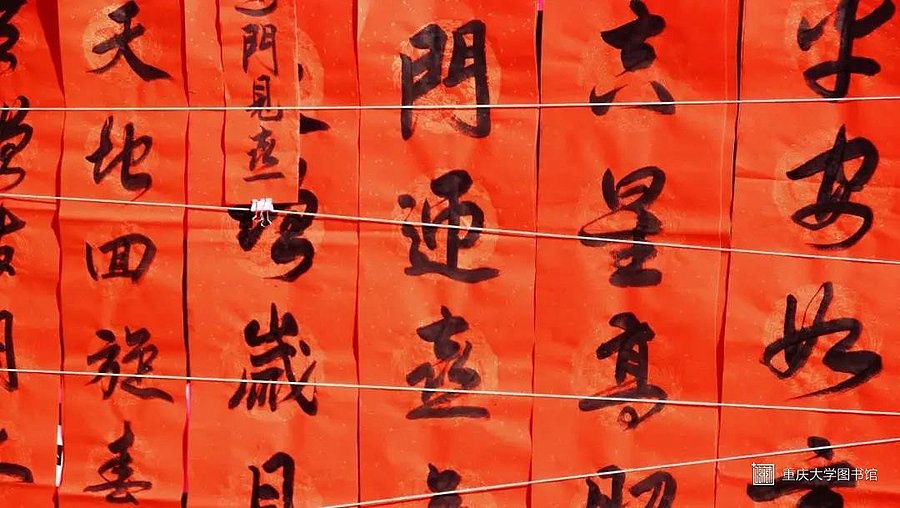 平安如意
吉星高照
門迎喜
門見喜
增歲月
天地回旋春
重庆大学图书馆